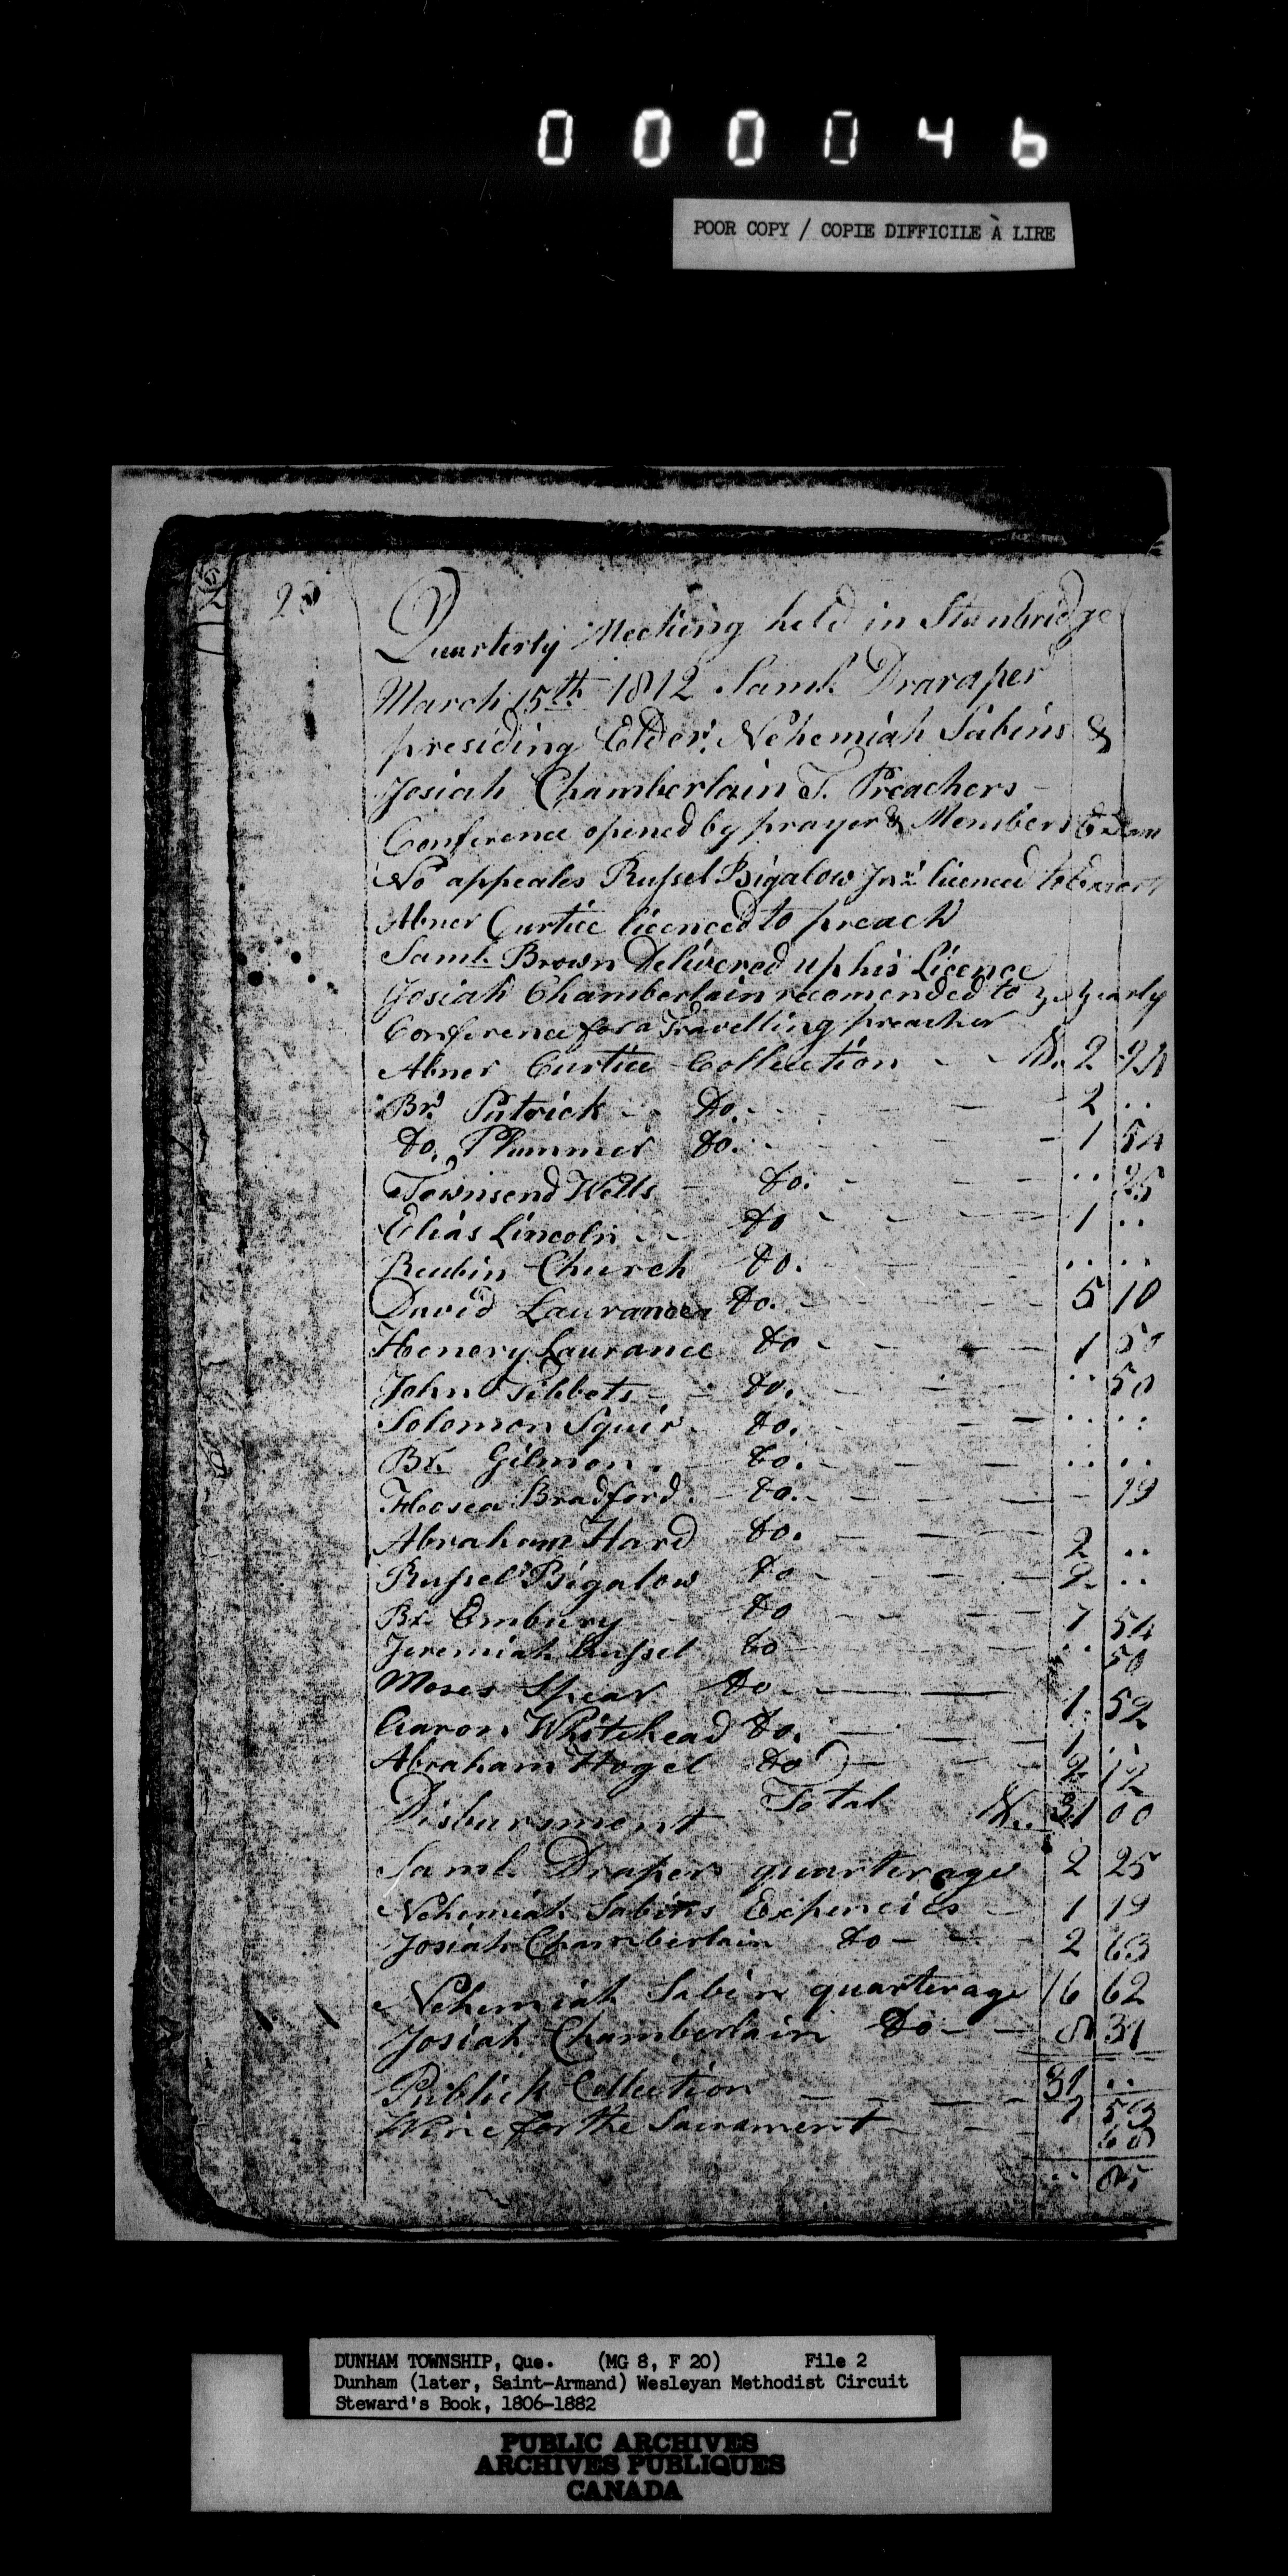 000046
POOR COPY / COPIE DIFFICILE À LIRE
Quarterly Meeting held in Stanbridge
March 15th 1812 Saml. Draraper
presiding Elder. Nehemiah Sabins &
Josiah Chamberlain T. Preachers
Conference opened by prayer & Members Exam
No appeales Russel Bigalow Jnr. licenced to Exort
Abner Curtice licenced to preach
Saml. Brown Delivered up his Licence
Josiah Chamberlain recomended to ye yearly
Conference for a Travelling preacher
Abner Curtice Collection - - D. 2
Br. Patrick - Do. - - - 2 ..
Do. Plummer Do. - - 1 54
Townsend Wells - Do. - - .. 25
Elias Lincoln - - Do - - - 1 ..
Reubin Church Do. - - .. ..
David Laurance Do. - - - 5 10
Henery Laurance Do - - - 1 50
John Tibbets - - Do. - - - .. 50
Solomon Squir - Do. - - - .. ..
Br. Gilmon. - Do. - - - .. ..
Hosea Bradford. - Do. - - - - 19
Abraham Hard Do. - - - 2 ..
Russel Bigalow Do - - - 2 ..
Br. Embury - Do - - - 7 54
Jeremiah Russel Do - - - .. 50
Moses Spear Do - - - 1. 52
Aaron Whitehead Do. - - - 1 ..
Abraham Hogel Do - - - 2 12
Total D. 31 00
Disbursment
Saml. Draper quarterage 2 25
Nehemiah Sabins Expencies - 1 19
Josiah Chamberlain Do - - - 2 63
Nehemiah Sabin quarterage 16 62
Josiah Chamberlain Do - - 8 31
31 ..
Publick Collection - - - - 1 53
Wine for the Sacrament - - -
DUNHAM TOWNSHIP, Que. (MG 8, F 20) File 2
Dunham (later, Saint-Armand) Wesleyan Methodist Circuit
Steward's Book, 1806-1882
PUBLIC ARCHIVES
ARCHIVES PUBLIQUES
CANADA